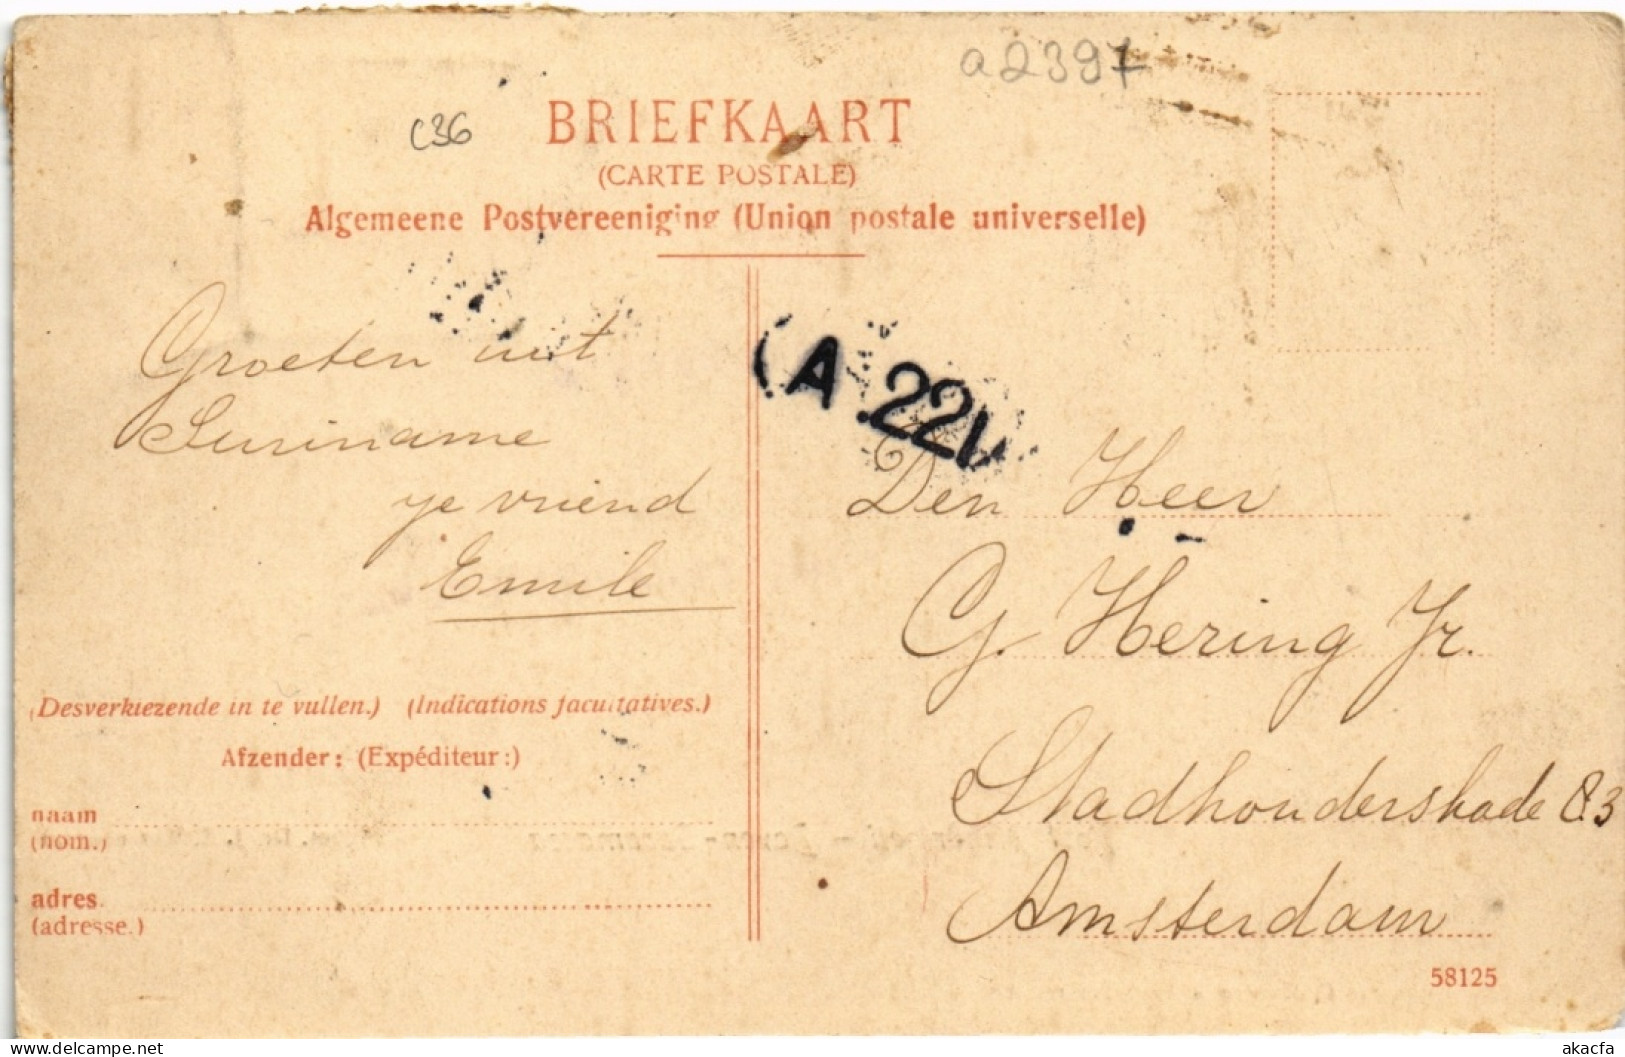 a2397
C36
BRIEFKAART
(CARTE POSTALE)
Algemeene Postvereeniging (Union postale universelle)
Groeten uit
Suriname
je vriend
Emile
(A.221
Den Heer
G. Hering Jr.
Stadhouderskade 83
Amsterdam
(Desverkiezende in te vullen.) (Indications facultatives.)
Afzender: (Expéditeur:)
naam
(nom.)
adres.
(adresse.)
58125
akacfa